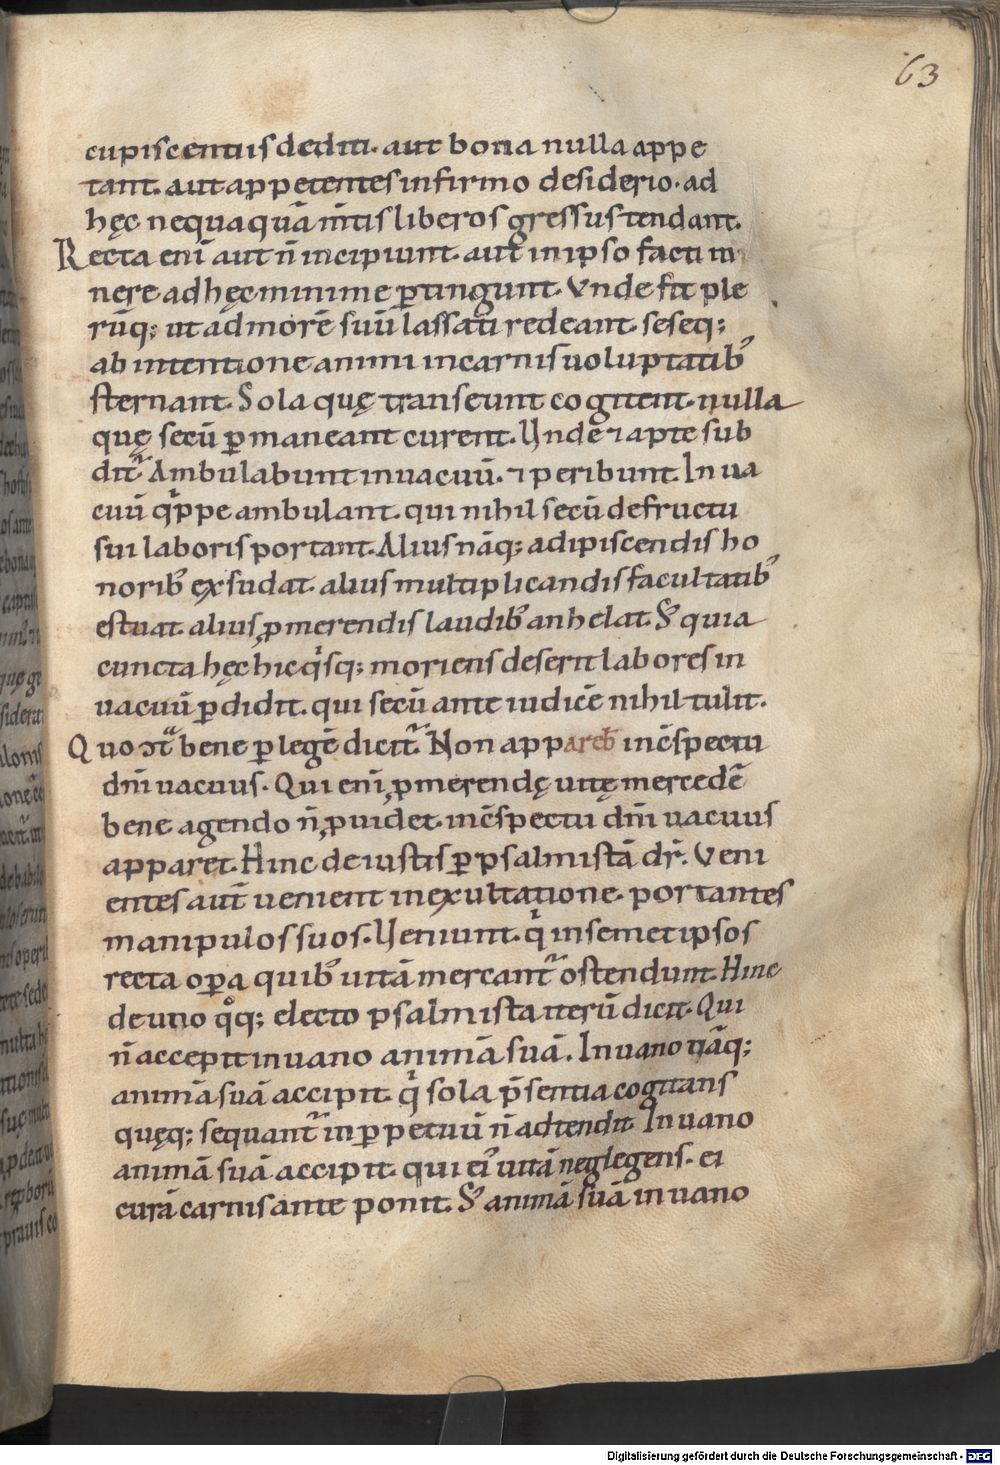 63
cupiscentiis dediti. aut bona nulla appe
tant. aut appetentes infirmo desiderio. ad
hęc nequaquā m̄tis liberos gressus tendant.
Recta enī aut n̄ incipiunt. aut in ipso facti iti
nere ad hęc minime ꝑtingunt. Vnde fit ple
rūq; ut ad morē suū lassati redeant. seseq;
ab intentione animi in carnis uoluptatib᾽
sternant. Sola quę transeunt cogitent. nulla
quę secū ꝑmaneant curent. Unde ⁊ apte sub
dit᷑ Ambulabunt in uacuū. ⁊ peribunt. In ua
cuū qͥppe ambulant. qui nihil secū de fructu
sui laboris portant. Alius nāq; adipiscendis ho
norib᾽ exsudat. alius multiplicandis facultatib᾽
estuat. alius ꝓmerendis laudib᾽ anhelat. S; quia
cuncta hęc hic qͥsq; moriens deserit labores in
uacuū ꝑdidit. qui secū ante iudicē nihil tulit.
Quo ↄtͣ bene ꝑ legē dicit᷑ Nonappareb᾽ in c̄spectu
dn̄i uacuus. Qui enī ꝓmerendę uitę mercedē
bene agendo n̄ ꝓuidet. in c̄spectu dn̄i uacuus
apparet. Hinc de iustis ꝑ psalmistā dr̄. Veni
entes aut̄ uenient in exultatione. portantes
manipulos suos. Ueniunt. qͥ in semetipsos
recta oꝑa quib᾽ uitā mereant᷑ ostendunt. Hinc
de uno qͦq; electo psalmista iterū dicit. Qui
n̄ accepit in uano animā suā. In uano nāq;
animā suā accipit. qͥ sola p̄sentia cogitans
quęq; sequant᷑ in ꝑpetuū n̄ adtendit. In uano
animā suā accipit. qui ei᾽ uitā neglegens. ei
curā carnis ante ponit. S; animā suā in uano
Digitalisierung gefördert durch die Deutsche Forschungsgemeinschaft - DFG